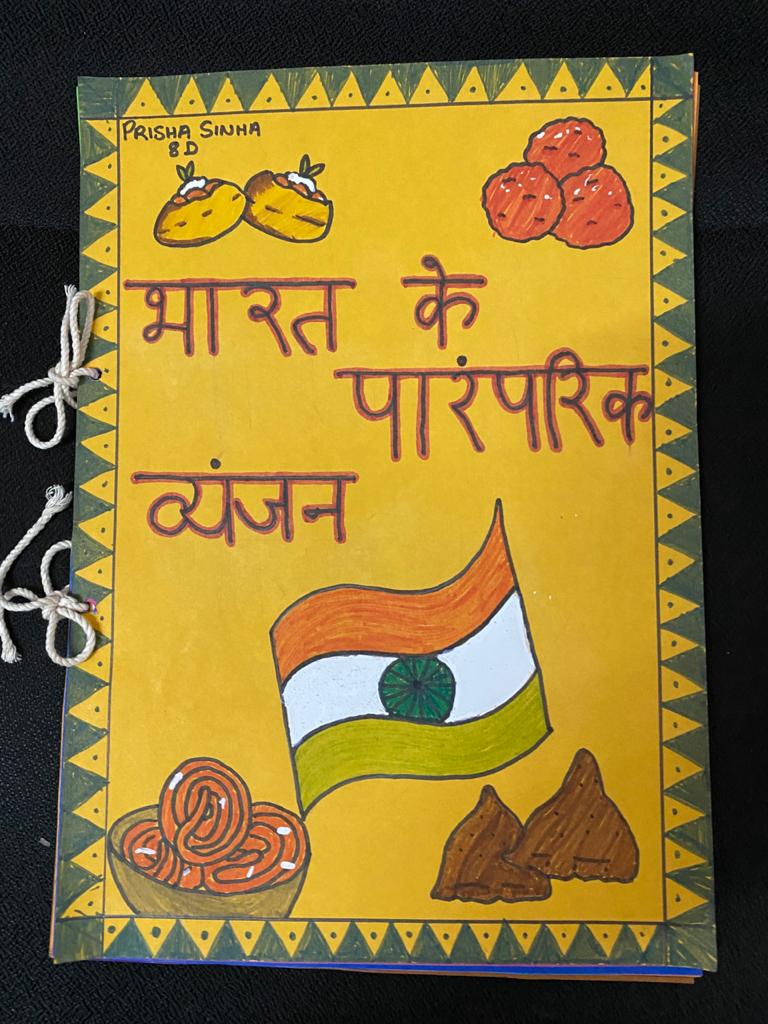 PRISHA SINHA
8 D
भारत के
पारंपरिक
व्यंजन